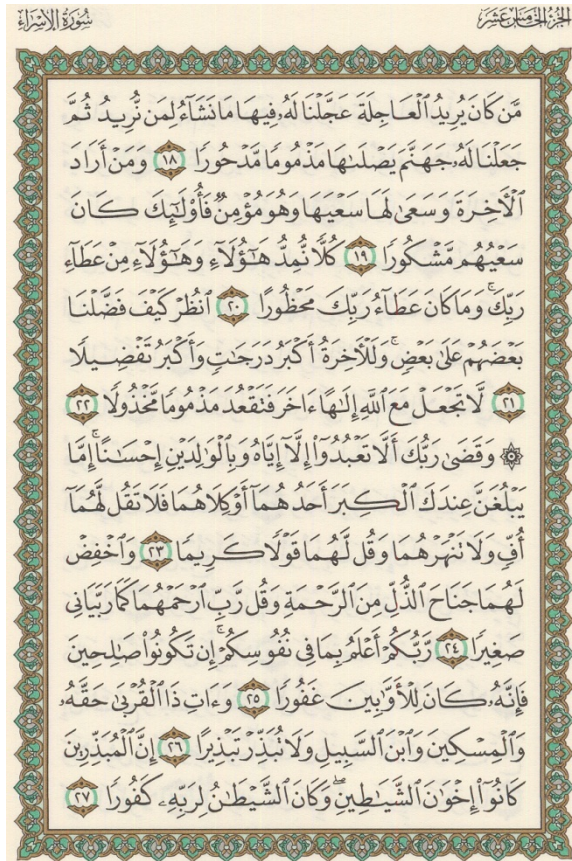 الجزء الخامس عشر
سورة الإسراء
مَّن كَانَ يُرِيدُ ٱلْعَاجِلَةَ عَجَّلْنَا لَهُۥ فِيهَا مَا نَشَآءُ لِمَن نُّرِيدُ ثُمَّ
جَعَلْنَا لَهُۥ جَهَنَّمَ يَصْلَىٰهَا مَذْمُومًا مَّدْحُورًا ١٨ وَمَنْ أَرَادَ
ٱلْـَٔاخِرَةَ وَسَعَىٰ لَهَا سَعْيَهَا وَهُوَ مُؤْمِنٌ فَأُو۟لَـٰٓئِكَ كَانَ
سَعْيُهُم مَّشْكُورًا ١٩ كُلًّا نُّمِدُّ هَـٰٓؤُلَآءِ وَهَـٰٓؤُلَآءِ مِنْ عَطَآءِ
رَبِّكَ ۚ وَمَا كَانَ عَطَآءُ رَبِّكَ مَحْظُورًا ٢٠ ٱنظُرْ كَيْفَ فَضَّلْنَا
بَعْضَهُمْ عَلَىٰ بَعْضٍ ۚ وَلَلْـَٔاخِرَةُ أَكْبَرُ دَرَجَـٰتٍ وَأَكْبَرُ تَفْضِيلًا
٢١ لَّا تَجْعَلْ مَعَ ٱللَّهِ إِلَـٰهًا ءَاخَرَ فَتَقْعُدَ مَذْمُومًا مَّخْذُولًا ٢٢
۞ وَقَضَىٰ رَبُّكَ أَلَّا تَعْبُدُوٓا۟ إِلَّآ إِيَّاهُ وَبِٱلْوَٰلِدَيْنِ إِحْسَـٰنًا ۚ إِمَّا
يَبْلُغَنَّ عِندَكَ ٱلْكِبَرَ أَحَدُهُمَآ أَوْ كِلَاهُمَا فَلَا تَقُل لَّهُمَآ
أُفٍّ وَلَا تَنْهَرْهُمَا وَقُل لَّهُمَا قَوْلًا كَرِيمًا ٢٣ وَٱخْفِضْ
لَهُمَا جَنَاحَ ٱلذُّلِّ مِنَ ٱلرَّحْمَةِ وَقُل رَّبِّ ٱرْحَمْهُمَا كَمَا رَبَّيَانِى
صَغِيرًا ٢٤ رَّبُّكُمْ أَعْلَمُ بِمَا فِى نُفُوسِكُمْ ۚ إِن تَكُونُوا۟ صَـٰلِحِينَ
فَإِنَّهُۥ كَانَ لِلْأَوَّٰبِينَ غَفُورًا ٢٥ وَءَاتِ ذَا ٱلْقُرْبَىٰ حَقَّهُۥ
وَٱلْمِسْكِينَ وَٱبْنَ ٱلسَّبِيلِ وَلَا تُبَذِّرْ تَبْذِيرًا ٢٦ إِنَّ ٱلْمُبَذِّرِينَ
كَانُوٓا۟ إِخْوَٰنَ ٱلشَّيَـٰطِينِ ۖ وَكَانَ ٱلشَّيْطَـٰنُ لِرَبِّهِۦ كَفُورًا ٢٧